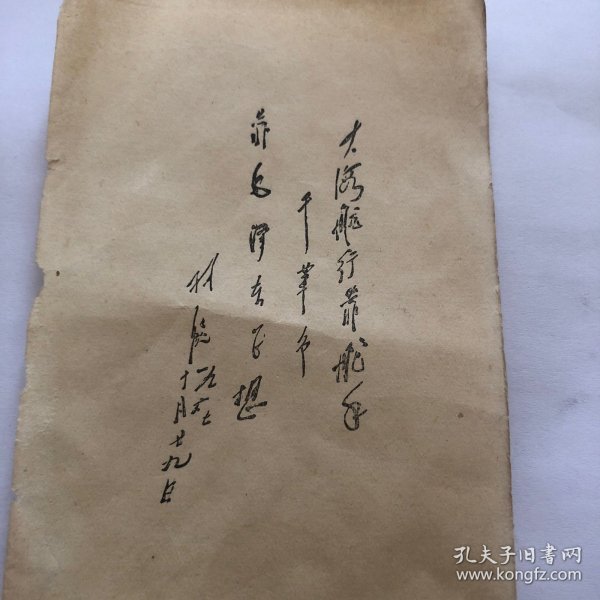 大海航行靠舵手
干革命
靠毛泽东思想
林彪
一九六七
十月廿九日
孔夫子旧书网
www.kongfz.com